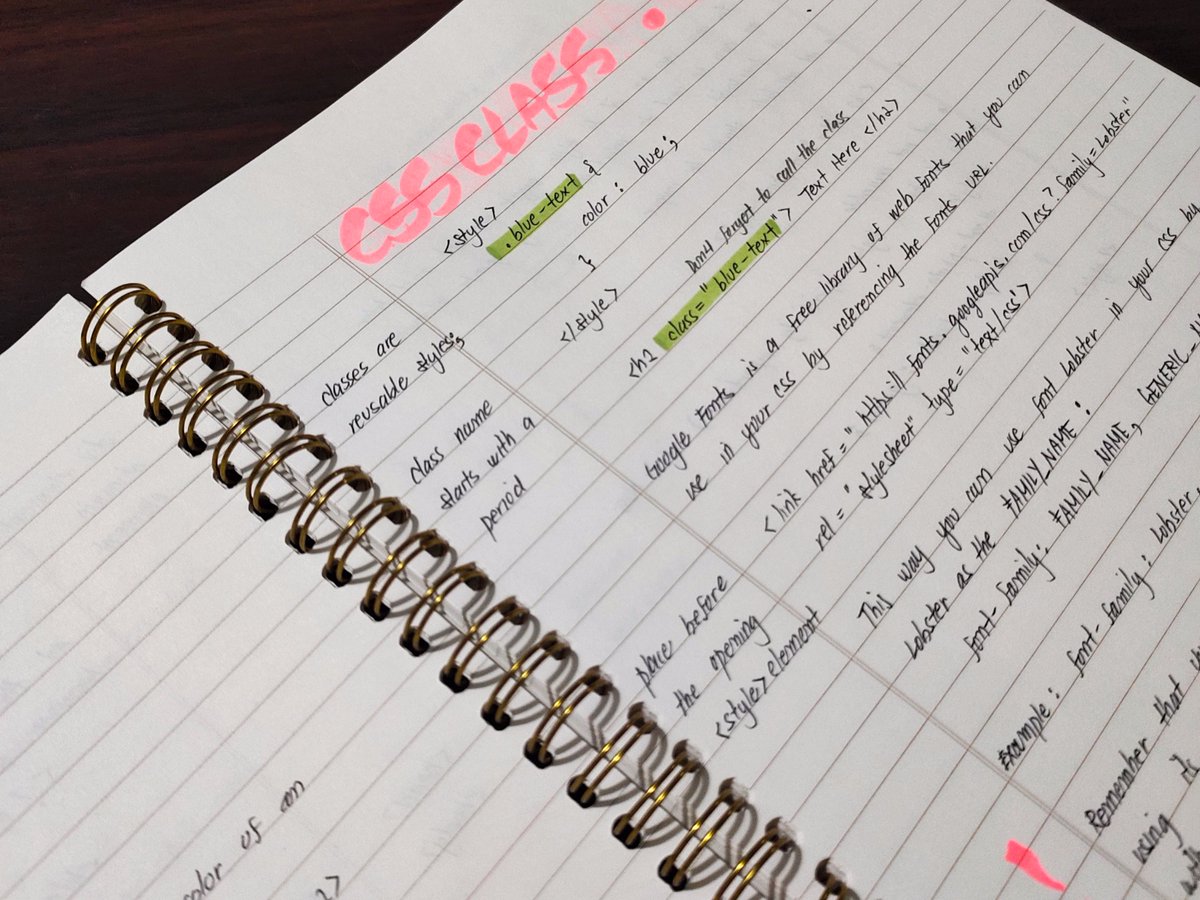 CSS CLASS.
<style>
.blue-text {
color: blue;
}
</style>
Dont forget to call the class
<h2 class="blue-text"> Text Here </h2>
classes are
reusable styles;
class name
starts with a
period
Google Fonts is a free library of web fonts that you can
use in your css by referencing the fonts URL.
<link href="https://fonts.googleapis.com/css?family=Lobster"
rel="stylesheet" type="text/css'>
place before
the opening
<style> element
This way you can use font Lobster in your css by
Lobster as the FAMILY_NAME:
font-family: FAMILY_NAME, GENERIC_
Example: font-family: Lobster
Remember that
using
color of an